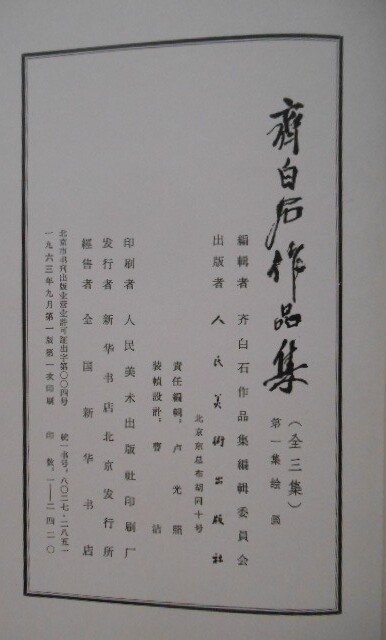 齊白石作品集
（全三集）
第一集绘画
編輯者 齐白石作品集編輯委員会
出版者 人民美術出版社
北京东总布胡同十号
責任編輯，卢光照
装幀設計，曹洁
印刷者 人民美术出版社印刷厂
发行者 新华书店北京发行所
經售者 全国新华书店
北京市书刊出版业营业許可証出字第〇〇四号
統一书号，八〇二七·二八五一
一九六三年九月第一版第一次印刷
印数，一——二四二〇